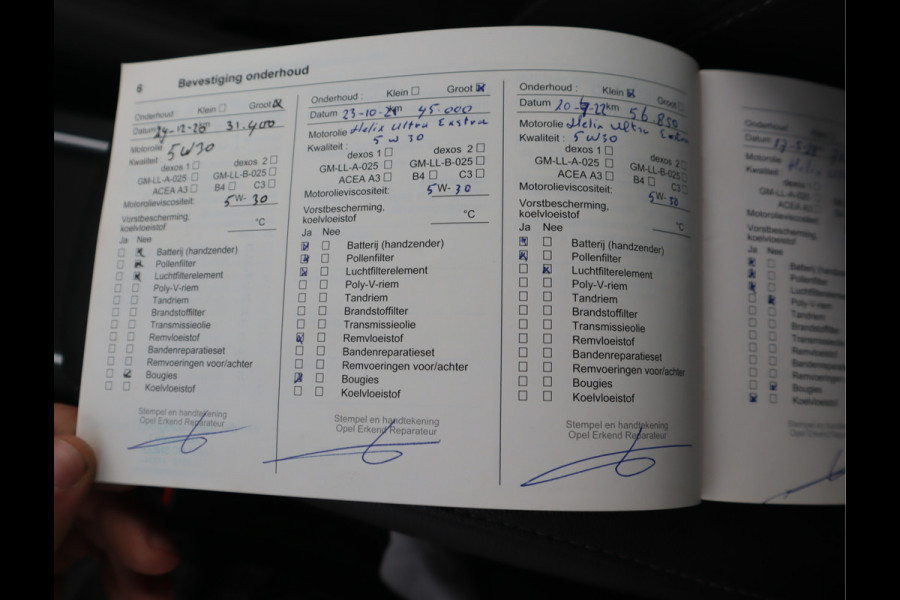 6
Bevestiging onderhoud
Onderhoud : Klein Groot
Datum 24-12-20 31.400
Motorolie
Kwaliteit : 5W30
dexos 1 dexos 2
GM-LL-A-025 GM-LL-B-025
ACEA A3 B4 C3
Motorolieviscositeit: 5W-30
Vorstbescherming,
koelvloeistof °C
Ja Nee
Batterij (handzender)
Pollenfilter
Luchtfilterelement
Poly-V-riem
Tandriem
Brandstoffilter
Transmissieolie
Remvloeistof
Bandenreparatieset
Remvoeringen voor/achter
Bougies
Koelvloeistof
Stempel en handtekening
Opel Erkend Reparateur
Onderhoud : Klein Groot
Datum 23-10-21 km 45.000
Motorolie Helix Ultra Exstra
5W30
Kwaliteit :
dexos 1 dexos 2
GM-LL-A-025 GM-LL-B-025
ACEA A3 B4 C3
Motorolieviscositeit: 5W-30
Vorstbescherming,
koelvloeistof °C
Ja Nee
Batterij (handzender)
Pollenfilter
Luchtfilterelement
Poly-V-riem
Tandriem
Brandstoffilter
Transmissieolie
Remvloeistof
Bandenreparatieset
Remvoeringen voor/achter
Bougies
Koelvloeistof
Stempel en handtekening
Opel Erkend Reparateur
Onderhoud : Klein Groot
Datum 20-9-22 km 56.850
Motorolie Helix Ultra
Kwaliteit : 5W30
dexos 1 dexos 2
GM-LL-A-025 GM-LL-B-025
ACEA A3 B4 C3
Motorolieviscositeit: 5W-30
Vorstbescherming,
koelvloeistof °C
Ja Nee
Batterij (handzender)
Pollenfilter
Luchtfilterelement
Poly-V-riem
Tandriem
Brandstoffilter
Transmissieolie
Remvloeistof
Bandenreparatieset
Remvoeringen voor/achter
Bougies
Koelvloeistof
Stempel en handtekening
Opel Erkend Reparateur
Onderhoud
Datum
Motorolie
Kwaliteit
dexos 1
GM-LL-A-025
ACEA A3
Motorolieviscositeit
Vorstbescherming,
koelvloeistof
Ja Nee
Batterij
Pollenfilter
Luchtfilterelement
Poly-V-riem
Tandriem
Brandstoffilter
Transmissieolie
Remvloeistof
Bandenreparatieset
Remvoeringen
Bougies
Koelvloeistof
Stempel en
Opel Erkend